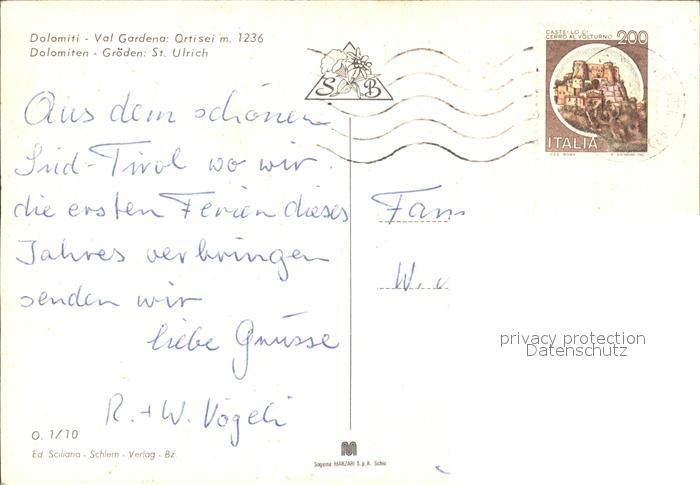 Dolomiti - Val Gardena: Ortisei m. 1236
Dolomiten - Gröden: St. Ulrich
Aus dem schönen
Süd-Tirol wo wir
die ersten Ferien dieses
Jahres verbringen
senden wir
liebe Grüsse
R. + W. Vögeli
O. 1/10
Ed. Sciliaria - Schlern - Verlag - Bz.
S B
CASTELLO DI
CERRO AL VOLTURNO
200
ITALIA
I.P.Z.S. ROMA
Fam
W.
privacy protection
Datenschutz
Sagoma MANZARI S.p.A. Schio